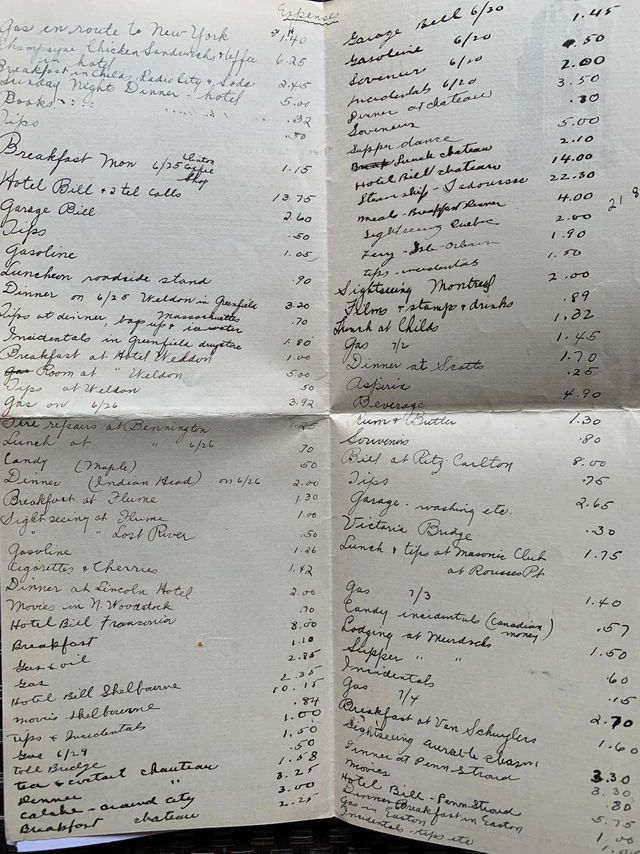 Expenses
Gas en route to New York $1.40
Champagne Chicken Sandwiches & Coffee
in hotel 6.25
Breakfast in Childs, Radio City & Soda 2.45
Sunday Night Dinner - hotel 5.00
Books .32
Tips .50
Breakfast Mon 6/25 Clinton Coffee Shop 1.15
Hotel Bill & 2 tel calls 13.75
Garage Bill 2.60
Tips .50
Gasoline 1.05
Luncheon roadside stand .90
Dinner on 6/25 Weldon in Greenfield Massachusetts 3.20
Tips at dinner, bags up & ice water .70
Incidentals in Greenfield drugstore 1.80
Breakfast at Hotel Weldon 1.00
Room at " Weldon 5.00
Tips at Weldon .50
Gas on 6/26 3.92
Tire repairs at Bennington 1.25
Lunch at " 6/26 .70
Candy (Maple) .50
Dinner (Indian Head) on 6/26 2.00
Breakfast at Flume 1.30
Sightseeing at Flume 1.00
" " Lost River .50
Gasoline 1.26
Cigarettes & Cherries 1.42
Dinner at Lincoln Hotel 2.00
Movies in N. Woodstock .70
Hotel Bill Franconia 8.00
Breakfast 1.10
Gas & oil 2.85
Gas 2.35
Hotel Bill Shelbourne 10.15
movies Shelbourne .84
Tips & Incidentals 1.00
Gas 6/29 1.50
toll Bridge .50
tea & contact chauteau 1.58
Dinner " 3.25
calshe - around city 3.00
Breakfast chateau 2.25
Garage Bill 6/30 1.45
Gasoline 6/20 .50
Soveneurs 6/20 2.00
Incidentals 6/20 3.50
Dinner at chateau .80
Soveneurs 5.00
Supper dance 2.10
Lunch chateau 14.00
Hotel Bill chateau 22.30
Steamship - Tadoussac 4.00
meals - Breakfast Dinner 2.00
Sightseeing Quebec 1.90
Ferry - Isle - Orleans 1.50
tips - incidentals
Sightseeing Montreal 2.00
Films & stamps & drinks .89
Lunch at Childs 1.32
Gas 7/2 1.45
Dinner at Scotts 1.70
Aspirin .25
Beverage 4.90
Rum & Butter 1.30
Souvenirs .80
Bill at Ritz Carlton 8.00
Tips .75
Garage - washing etc. 2.65
Victoria Bridge .30
Lunch & tips at Masonic Club 1.75
at Rouses Pt
Gas 7/3 1.40
Candy incidentals (Canadian money) .57
Lodging at Murdocks 1.50
Supper " " .60
Incidentals .15
Gas 7/4
Breakfast at Van Schuylers 2.70
Sightseeing ausable chasm 1.60
Dinner at Penn-Stroud 3.30
Movies .80
Hotel Bill - Penn Stroud 5.75
Breakfast in Easton 1.00
Gas in Easton
Incidentals - tips etc